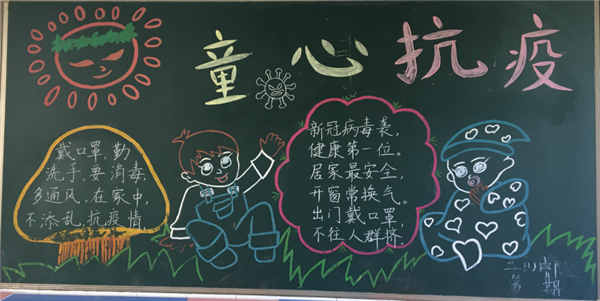 童心抗疫
戴口罩,勤
洗手,要消毒,
多通风,在家中,
不添乱,抗疫情,
新冠病毒袭,
健康第一位。
居家最安全,
开窗常换气。
出门戴口罩,
不往人群挤,